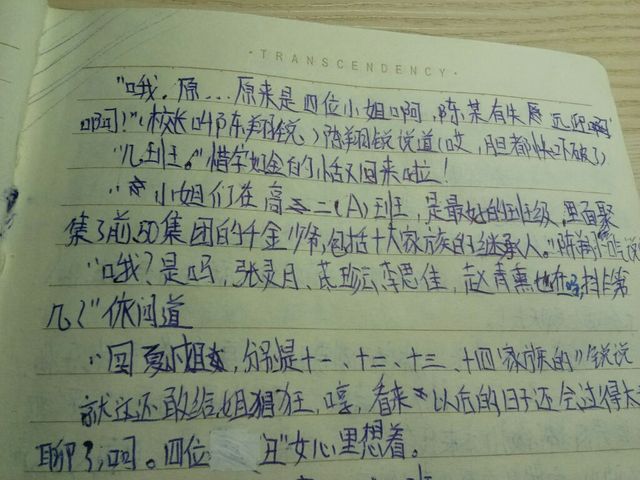 ·TRANSCENDENCY·
"哦，原…原来是四位小姐啊，陈某有失远迎啊
啊！"（校长叫陈翔锐）陈翔锐说道（哎，胆都快吓破了）
"几班。"惜字如金的小恬又回来啦！
"小姐们在高二（A）班，是最好的班级，里面聚
集了前50集团的千金少爷，包括十大家族的继承人。"陈翔锐说
"哦？是吗，张灵月、李思佳，赵青熏也在吗，排第
几？"依问道
"回夏小姐，分别是十一、十二、十三、十四家族的"锐说
就这还敢给姐猖狂，哼，看来以后的日子还会过得太
聊了，呵。四位 丑"女心里想着。